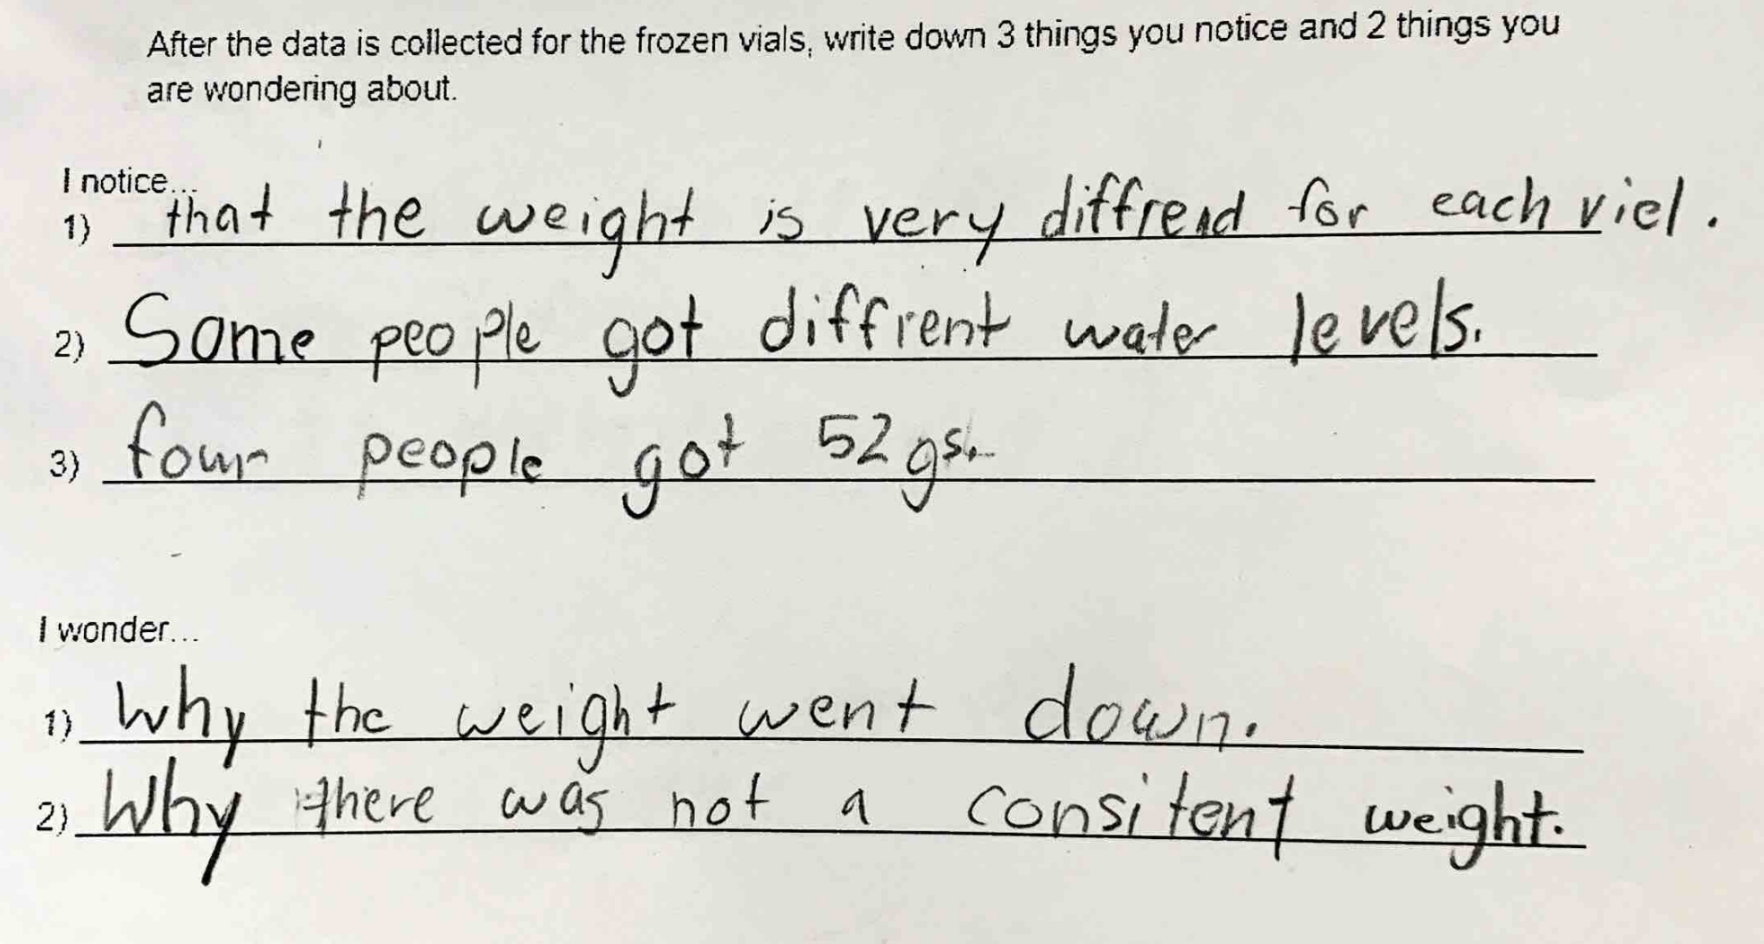 After the data is collected for the frozen vials, write down 3 things you notice and 2 things you
are wondering about.
I notice...
1) that the weight is very diffrend for each viel.
2) Some people got diffrent water levels.
3) four people got 52 gs.
I wonder...
1) Why the weight went down.
2) Why there was not a consitent weight.